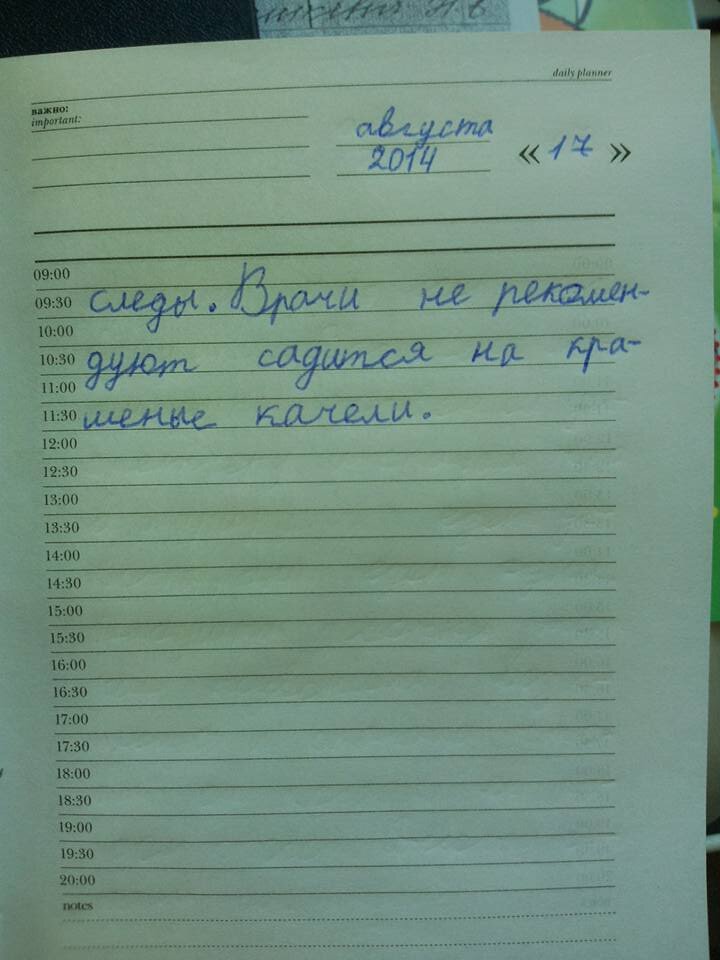 daily planner
важно:
important:
августа
2014 « 17 »
09:00
09:30 следы. Врачи не рекомен-
10:00
10:30 дуют садится на кра-
11:00
11:30 шеные качели.
12:00
12:30
13:00
13:30
14:00
14:30
15:00
15:30
16:00
16:30
17:00
17:30
18:00
18:30
19:00
19:30
20:00
notes